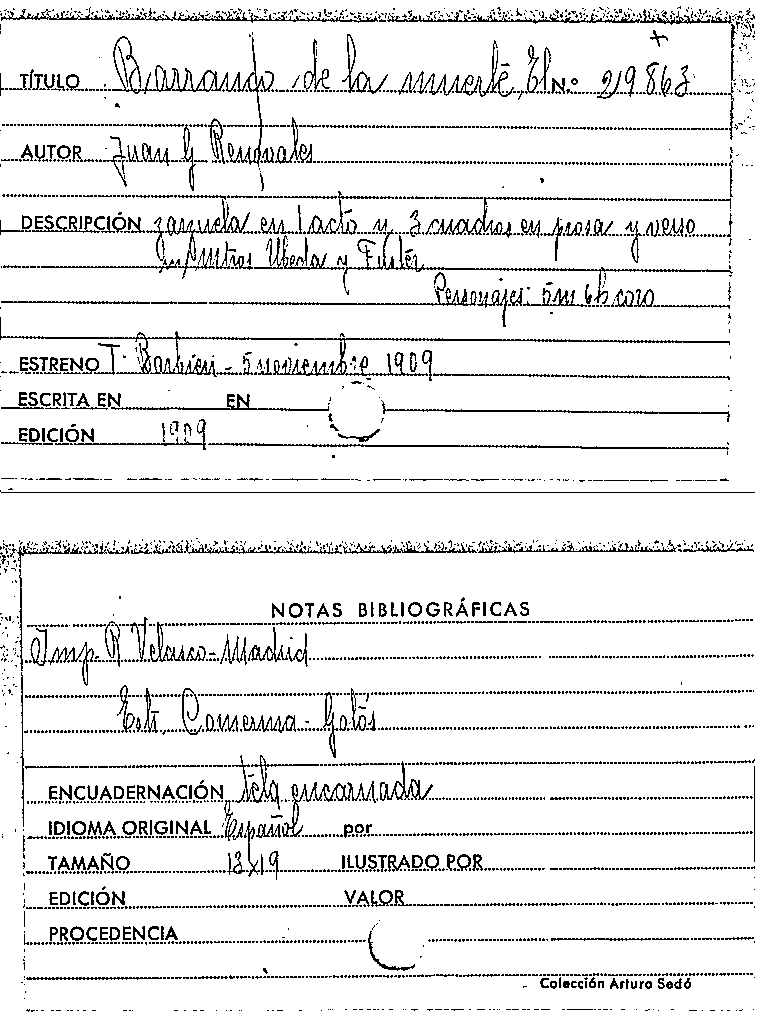 TÍTULO Barranco de la muerte, El N.º 219863
AUTOR Juan G Renovales
DESCRIPCIÓN zarzuela en 1 acto y 3 cuadros en prosa y verso
Mtros Ubeda y Fuster
Personajes: 5m 6h coro
ESTRENO T. Barbieri - 5 noviembre 1909
ESCRITA EN EN
EDICIÓN 1909
NOTAS BIBLIOGRÁFICAS
Imp. R Velasco - Madrid
ENCUADERNACIÓN tela encarnada
IDIOMA ORIGINAL Español por
TAMAÑO 13x19 ILUSTRADO POR
EDICIÓN VALOR
PROCEDENCIA
Colección Arturo Sedó